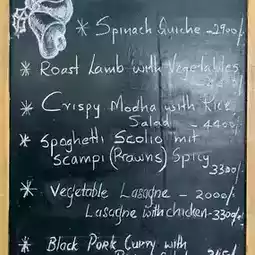 * Spinach Quiche - 2900/-
* Roast Lamb with Vegetables
* Crispy Modha with Rice
Salad - 4400/-
* Spaghetti Scolio mit
Scampi (Prawns) Spicy
3300/-
* Vegetable Lasagne - 2000/-
Lasagne with chicken - 3300/-
* Black Pork Curry with